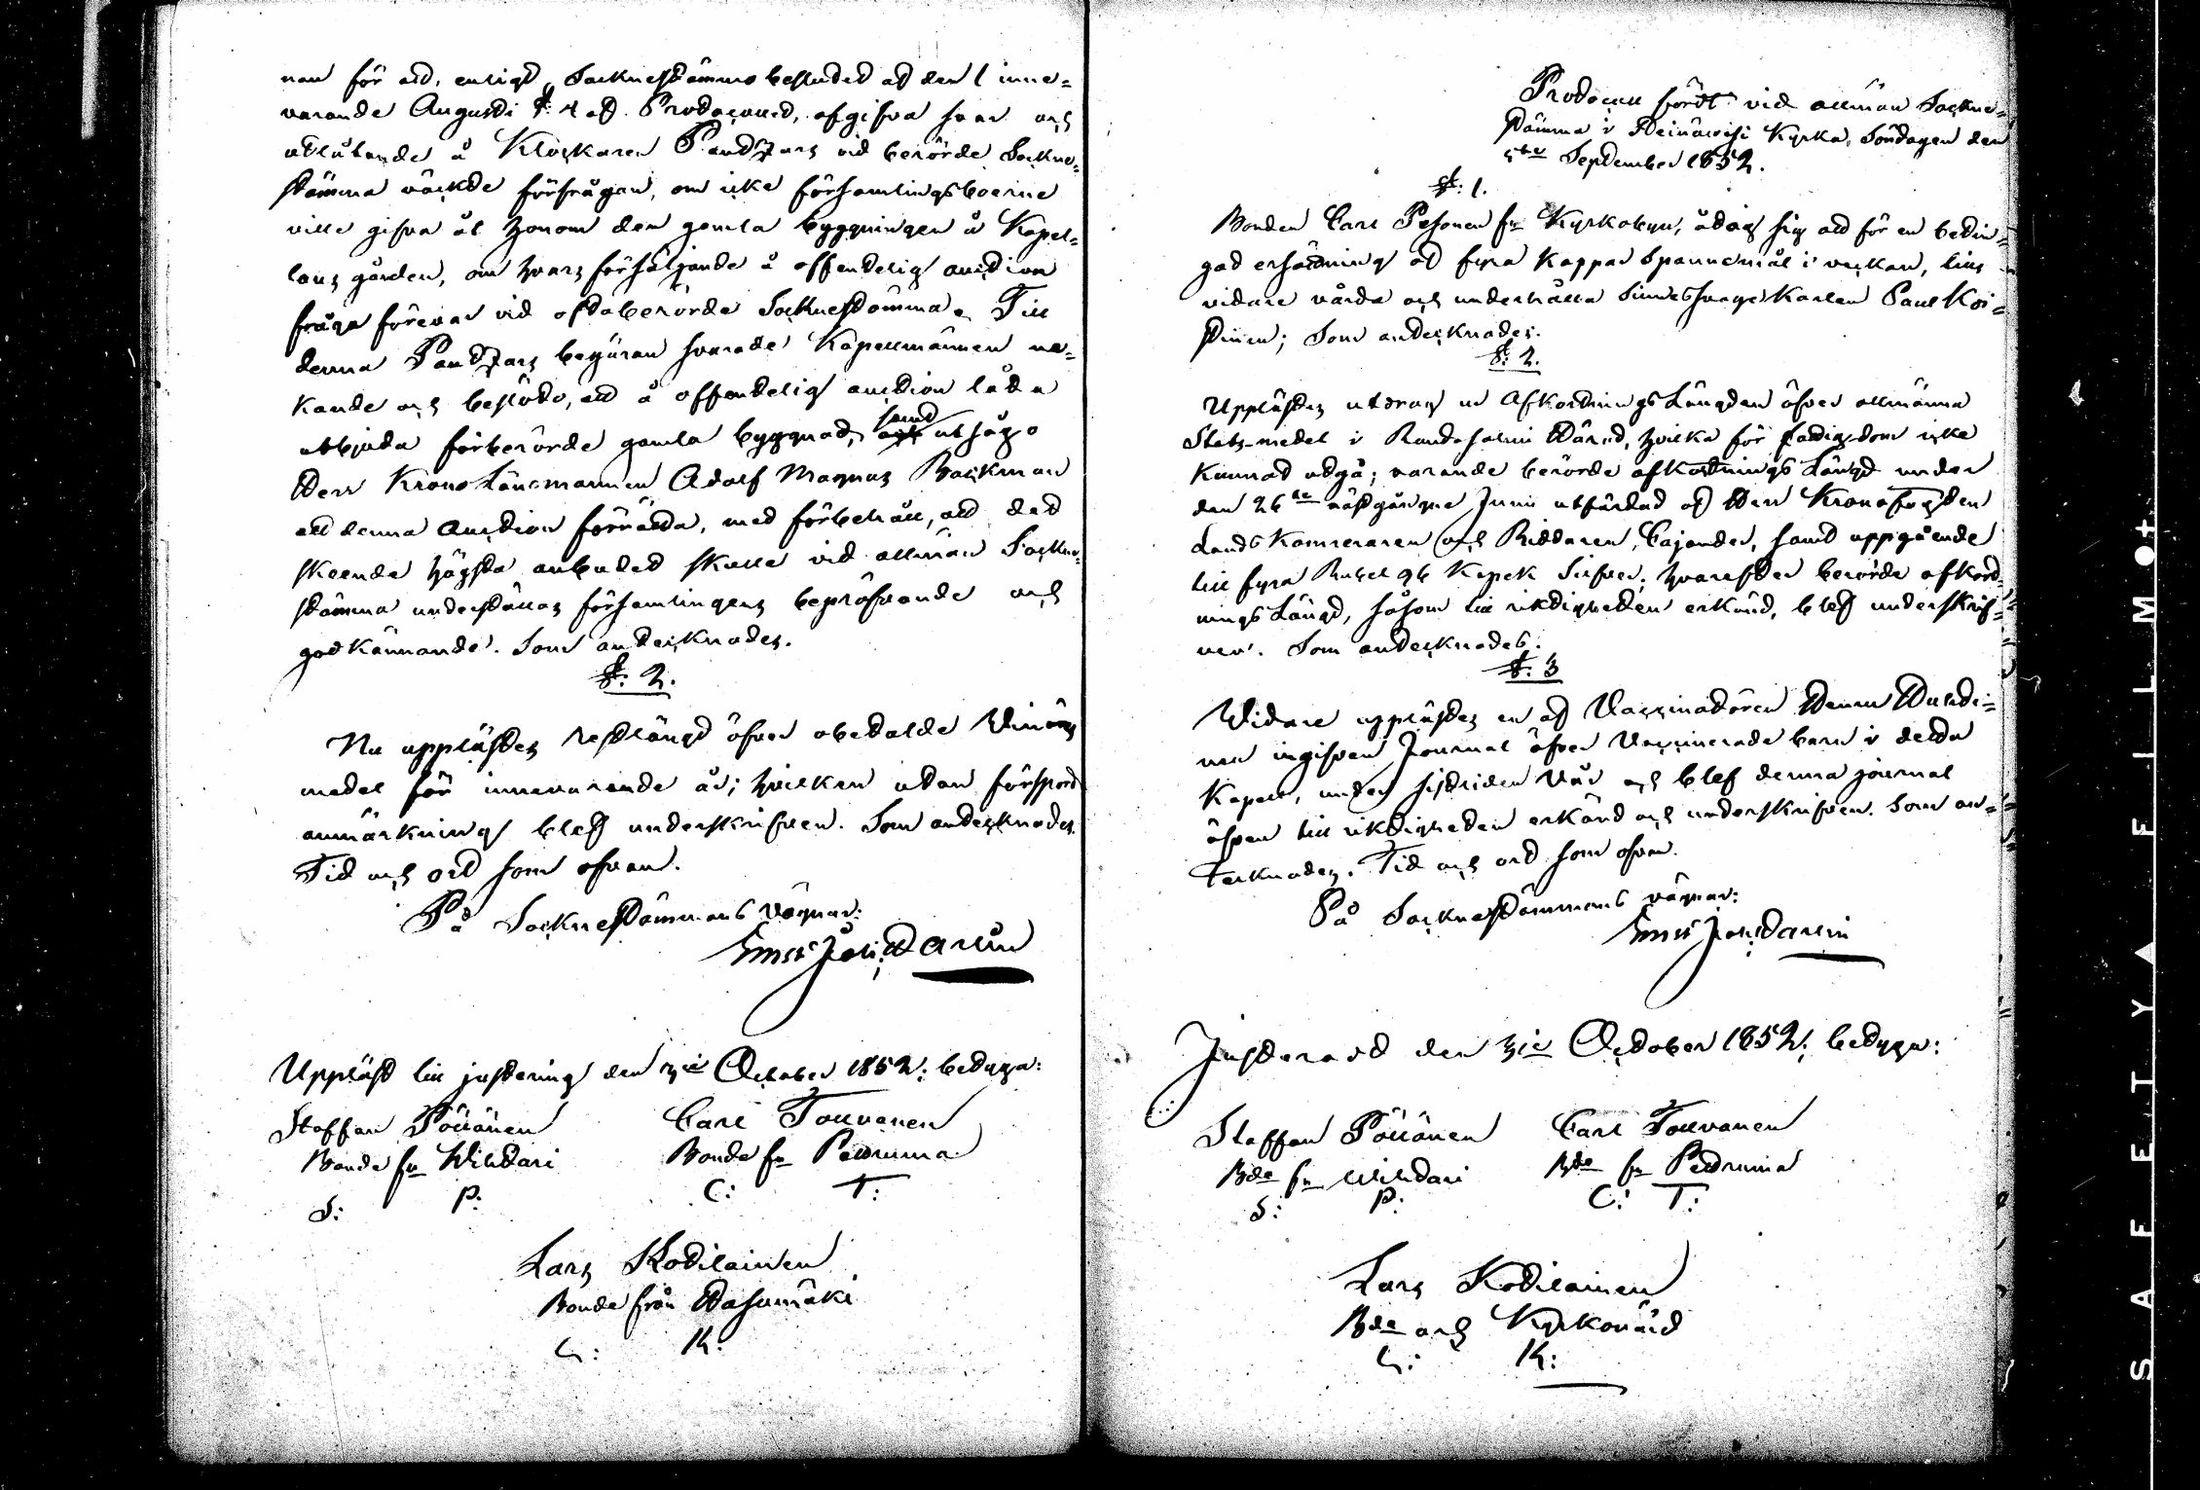 nan för att, enligt Socknestämmo beslutet af den 1 inne=
varande Augusti §: 4 af Protocollet, afgifva svar och
utlåtande å Klockaren Pandzars vid berörde Sockne=
stämma väckde förfrågan, om icke församlingsboerne
ville gifva åt honom den gamla byggningen å Kapel=
lans gården, om hvars försäljande å offentelig auction
fråga förevar vid oftaberörde Socknestämma. Till
denna Pandzars begäran svarade Kapellmännen ne=
kande och beslöto, att å offentelig auction låta
utbjuda förberörde gamla byggnad, samt utsågo
Herr Krono Länsmannen Adolf Magnus Backman
att denna auction förrätta, med förbehåll, att det
skeende högsta anbudet skulle vid allmän Sockne=
stämma underställas församlingens bepröfvande och
godkännande. Som antecknades.
§: 2.
Nu upplästes restlängd öfver obetalde
medel för innevarande år; hvilken utan försport
anmärkning blef underskrifven. Som antecknades.
Tid och ort som ofvan.
På Socknestämmans vägnar:
Ernst Joh: Harlin
Uppläst till justering den 3je October 1852; betyga:
Staffan Pöllänen Carl Tourvanen
Bonde fn Wihtari Bonde fn Petruma
S: P: C: T:
Lars Kotilainen
Bonde från Hasumäki
L: K:
Protocoll fördt vid allmän Sockne=
stämma i Heinäwesi Kyrka, Söndagen den
5te September 1852.
§: 1.
Bonden Carl Pesonen fn Kyrkobyn, åtog sig att för en betin=
gad ersättning af fyra Kappar Spannemål i veckan, tills
vidare vårda och underhålla Sinnessvage Karlen Paul Koi=
stinen; Som antecknades.
§: 2.
Upplästes utdrag ur Afkortnings Längden öfver allmänna
Stats-medel i Randasalmi Härad, hvilka för fattigdom icke
kunnat utgå; varande berörde afkortnings Längd under
den 26te nästgångne Junii utfärdad af Herr Kronofogden
Lands Kamreraren och Riddaren, Cajander, samt uppgående
till fyra Rubel 96 Kopek Silfver; hvarefter berörde afkort=
nings Längd, såsom till riktigheten erkänd, blef underskrif=
ven. Som antecknades.
§: 3
Widare upplästes en af Vaccinatören Henric Hultti=
nen ingifven Journal öfver Vaccinerade barn i detta
Kapell, under sistliden Vår och blef denna journal
äfven till riktigheten erkänd och underskrifven. Som an=
tecknades. Tid och ort som ofvan.
På Socknestämmans vägnar:
Ernst Joh: Harlin
Justeradt den 3je October 1852; betyga:
Staffan Pöllänen Carl Tourvanen
Bde fn Wihtari Bde fn Petruma
S: P: C: T:
Lars Kotilainen
Bde och Kyrkovärd
L: K:
SAFETY▲FILM